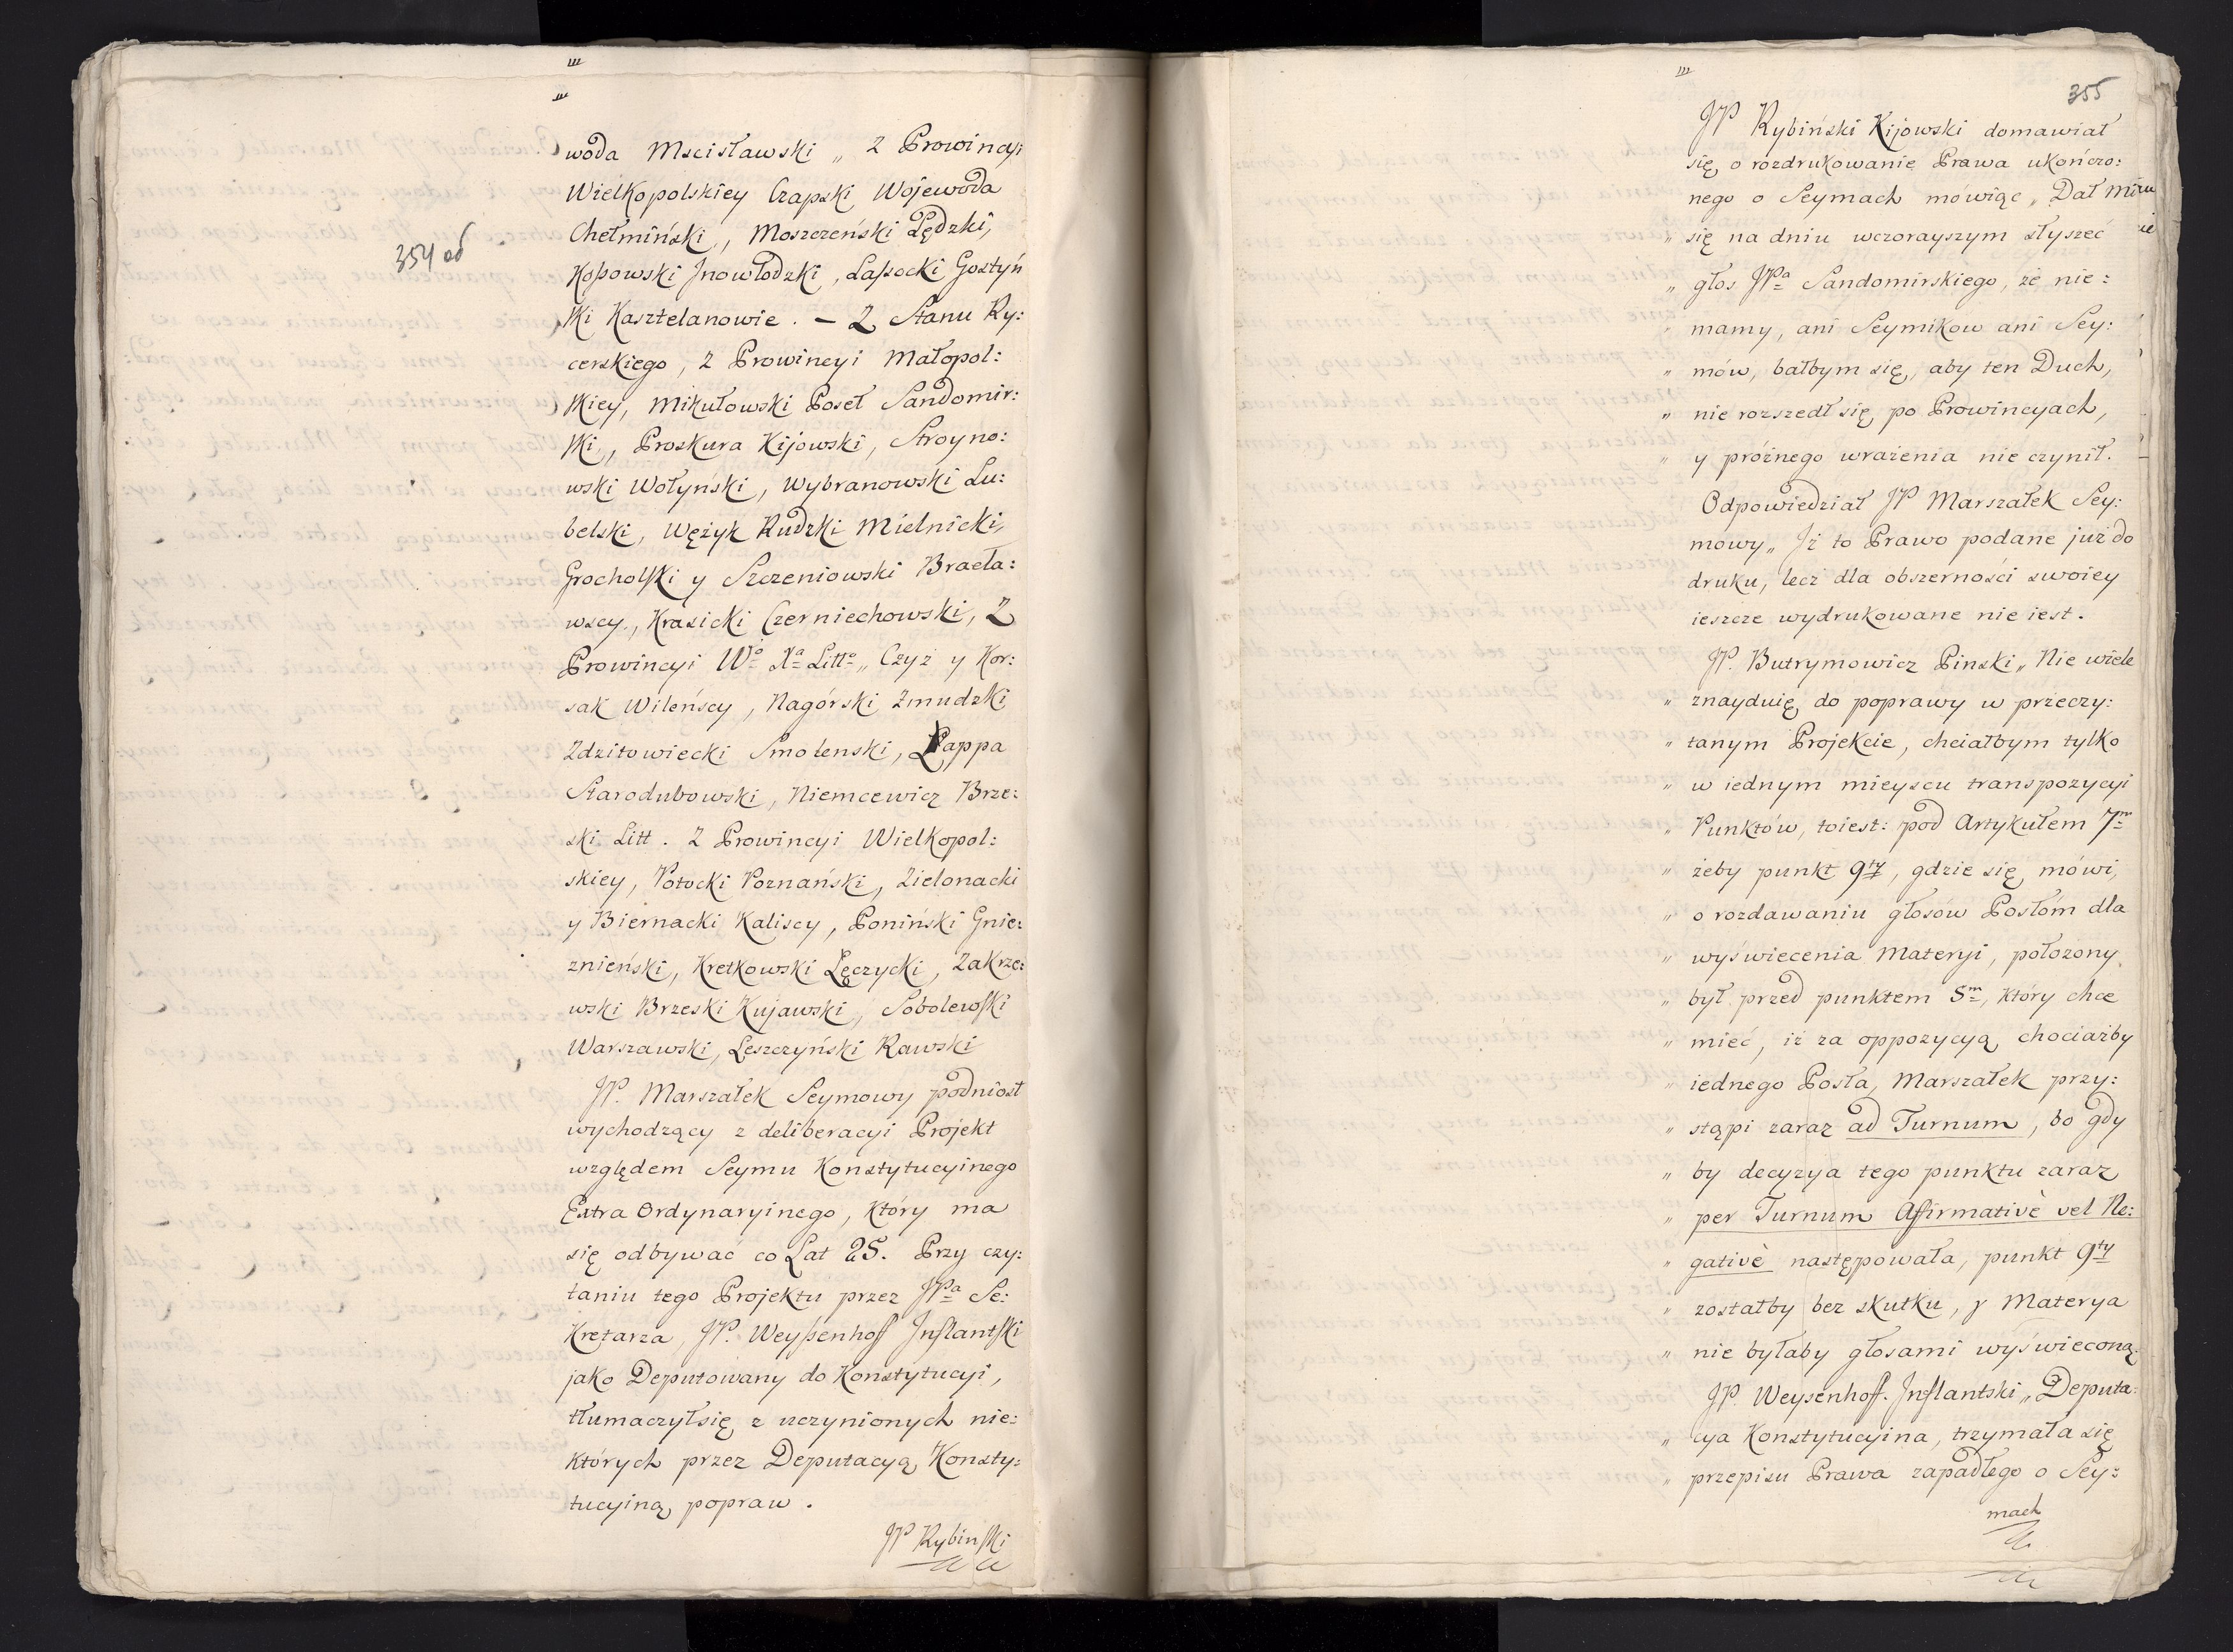 354 об
woda Mscisławski „ Z Prowincyi
Wielkopolskiey Czapski Wojewoda
Chełmiński, Moszczeński Lędzki,
Koſsowski Jnowłodzki, Laſsocki Gostyń
ſki Kasztelanowie. – Z Stanu Ry:
cerskiego, z Prowincyi Małopol:
ſkiey, Mikułowski Poseł Sandomir:
ſki, Proskura Kijowski, Stroyno:
wski Wołyński, Wybranowski Lu:
belski, Wężyk Rudzki Mielnicki,
Grocholſki y Szczeniowski Bracła:
wscy, Krasicki Czerniechowski, Z
Prowincyi Wo Xa Litto „ Czyż y Kor:
sak Wileńscy, Nagórski Zmudzki
Zdzitowiecki Smolenski, Łappa
Starodubowski, Niemcewicz Brze:
ski Litt. Z Prowincyi Wielkopol:
skiey, Potocki Poznański, Zielonacki
y Biernacki Kaliscy, Poniński Gnie:
znieński, Kretkowski Lęczycki, Zakrze:
wski Brzeski Kujawski, Sobolewſki
Warszawski, Leszczyński Rawski
JP. Marszałek Seymowy podniosł
wychodzący z deliberacyi Projekt
względem Seymu Konstytucyinego
Extra Ordynaryinego, który ma
się odbywać co Lat 25. Przy czy:
taniu tego Projektu przez JPa Se:
kretarza, JP. Weyſsenhoff Jnflantſki
jako Deputowany do Konstytucyi,
tłumaczył się z uczynionych nie:
których przez Deputacyą Konsty:
tucyiną popraw.
JP Rybinſki
355
JP Rybiński Kijowski domawiał
się o rozdrukowanie Prawa ukończo:
nego o Seymach mówiąc „ Dał mi
„ się na dniu wczorayszym słyszeć
„ głos JPa Sandomirskiego, że nie:
„ mamy, ani Seymikow ani Sey:
„ mów, bałbym się, aby ten Duch,
„ nie rozszedł się po Prowincyach,
„ y próżnego wrażenia nie czynił.
Odpowiedział JP Marszałek Sey:
mowy „ Jż to Prawo podane już do
druku, lecz dla obszerności swoiey
ieszcze wydrukowane nie iest.
JP. Butrymowicz Pinski „ Nie wiele
„ znayduię do poprawy w przeczy:
„ tanym Projekcie, chciałbym tylko
„ w iednym mieyscu transpozycyi
„ Punktów, toiest: pod Artykułem 7m
„ żeby punkt 9ty, gdzie się mówi,
„ o rozdawaniu głosów Posłóm dla
„ wyświecenia Materyi, położony
„ był przed punktem 8m, który chce
„ mieć, iż za oppozycyą chociażby
„ iednego Posła, Marszałek przy:
„ stąpi zaraz ad Turnum, bo gdy
„ by decyzya tego punktu zaraz
„ per Turnum Affirmativè vel Ne:
„ gativè następowała, punkt 9ty
„ zostałby bez skutku, y Materya
„ nie byłaby głosami wyświeconą.
JP. Weysenhoff. Jnflantski „ Deputa:
„ cya Konstytucyina, trzymała się
„ przepisu Prawa zapadłego o Sey:
mach